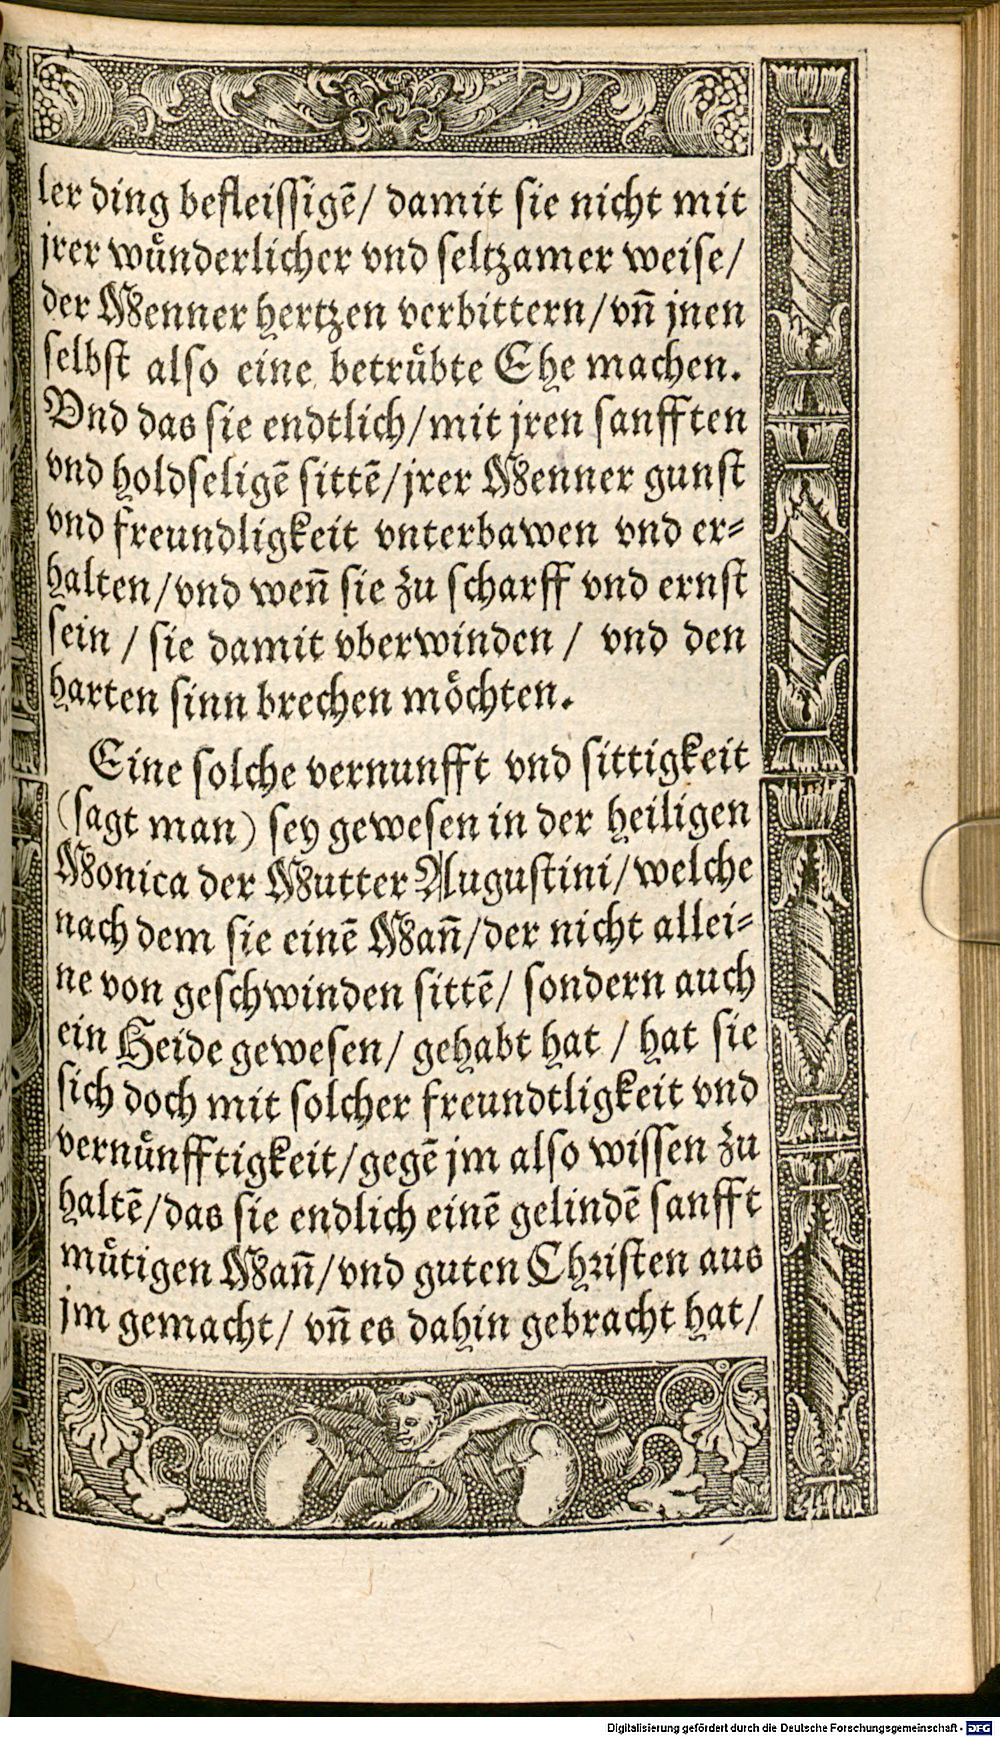 ler ding befleissigẽ/ damit sie nicht mit
jrer wünderlicher vnd seltzamer weise/
der Menner hertzen verbittern/vñ jnen
selbst also eine betrübte Ehe machen.
Vnd das sie endtlich/mit jren sanfften
vnd holdseligẽ sittẽ/jrer Menner gunst
vnd freundligkeit vnterbawen vnd er=
halten/vnd weñ sie zu scharff vnd ernst
sein / sie damit vberwinden / vnd den
harten sinn brechen möchten.
Eine solche vernunfft vnd sittigkeit
(sagt man) sey gewesen in der heiligen
Monica der Mutter Augustini/welche
nach dem sie einẽ Mañ/der nicht allei=
ne von geschwinden sittẽ/ sondern auch
ein Heide gewesen/ gehabt hat / hat sie
sich doch mit solcher freundtligkeit vnd
vernünfftigkeit/gegẽ jm also wissen zu
haltẽ/das sie endlich einẽ gelindẽ sanfft
mütigen Mañ/vnd guten Christen aus
jm gemacht/ vñ es dahin gebracht hat/
Digitalisierung gefördert durch die Deutsche Forschungsgemeinschaft - DFG